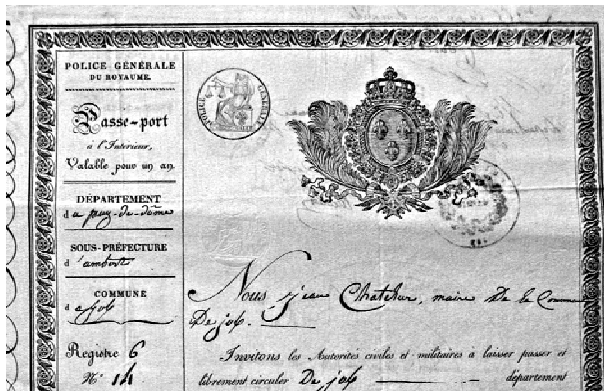 POLICE GÉNÉRALE
DU ROYAUME.
Passe-port
à l'Intérieur,
Valable pour un an.
DÉPARTEMENT
du puy-de-dôme
SOUS-PRÉFECTURE
d'ambert
COMMUNE
d job
Registre 6
N.º 14
POLICE GENERALE
Nous jean Chatelur, maire De la Commune
De job.
Invitons les Autorités civiles et militaires à laisser passer et
librement circuler De job département